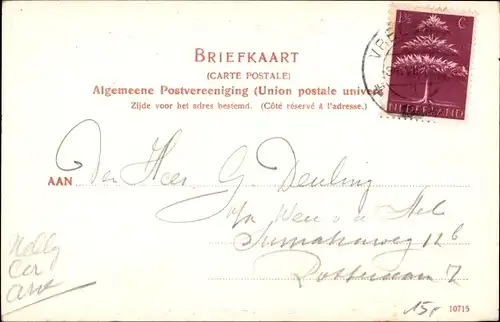 BRIEFKAART
(CARTE POSTALE)
Algemeene Postvereeniging (Union postale univers
Zijde voor het adres bestemd. (Côté réservé à l'adresse.)
1½ C.
NEDERLAND
AAN Den Heer G. Deuling
Wen v. d. Hel
Sumatraweg 12b
Rotterdam Z
Nelly
Cor
15,-
10715